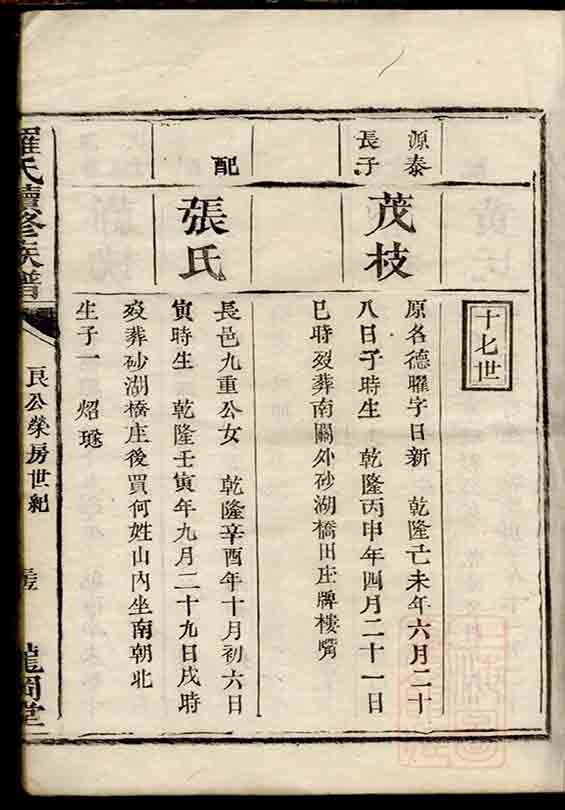 十七世
源泰
長子
茂枝
原名德曜字日新 乾隆己未年六月二十
八日子時生 乾隆丙申年四月二十一日
巳時歿葬南關外砂湖橋田庄牌樓嘴
配
張氏
長邑九重公女 乾隆辛酉年十月初六日
寅時生 乾隆壬寅年九月二十九日戌時
歿葬砂湖橋庄後買何姓山內坐南朝北
生子一 炤璲
羅氏續修族譜
良公榮房世紀
龍岡堂